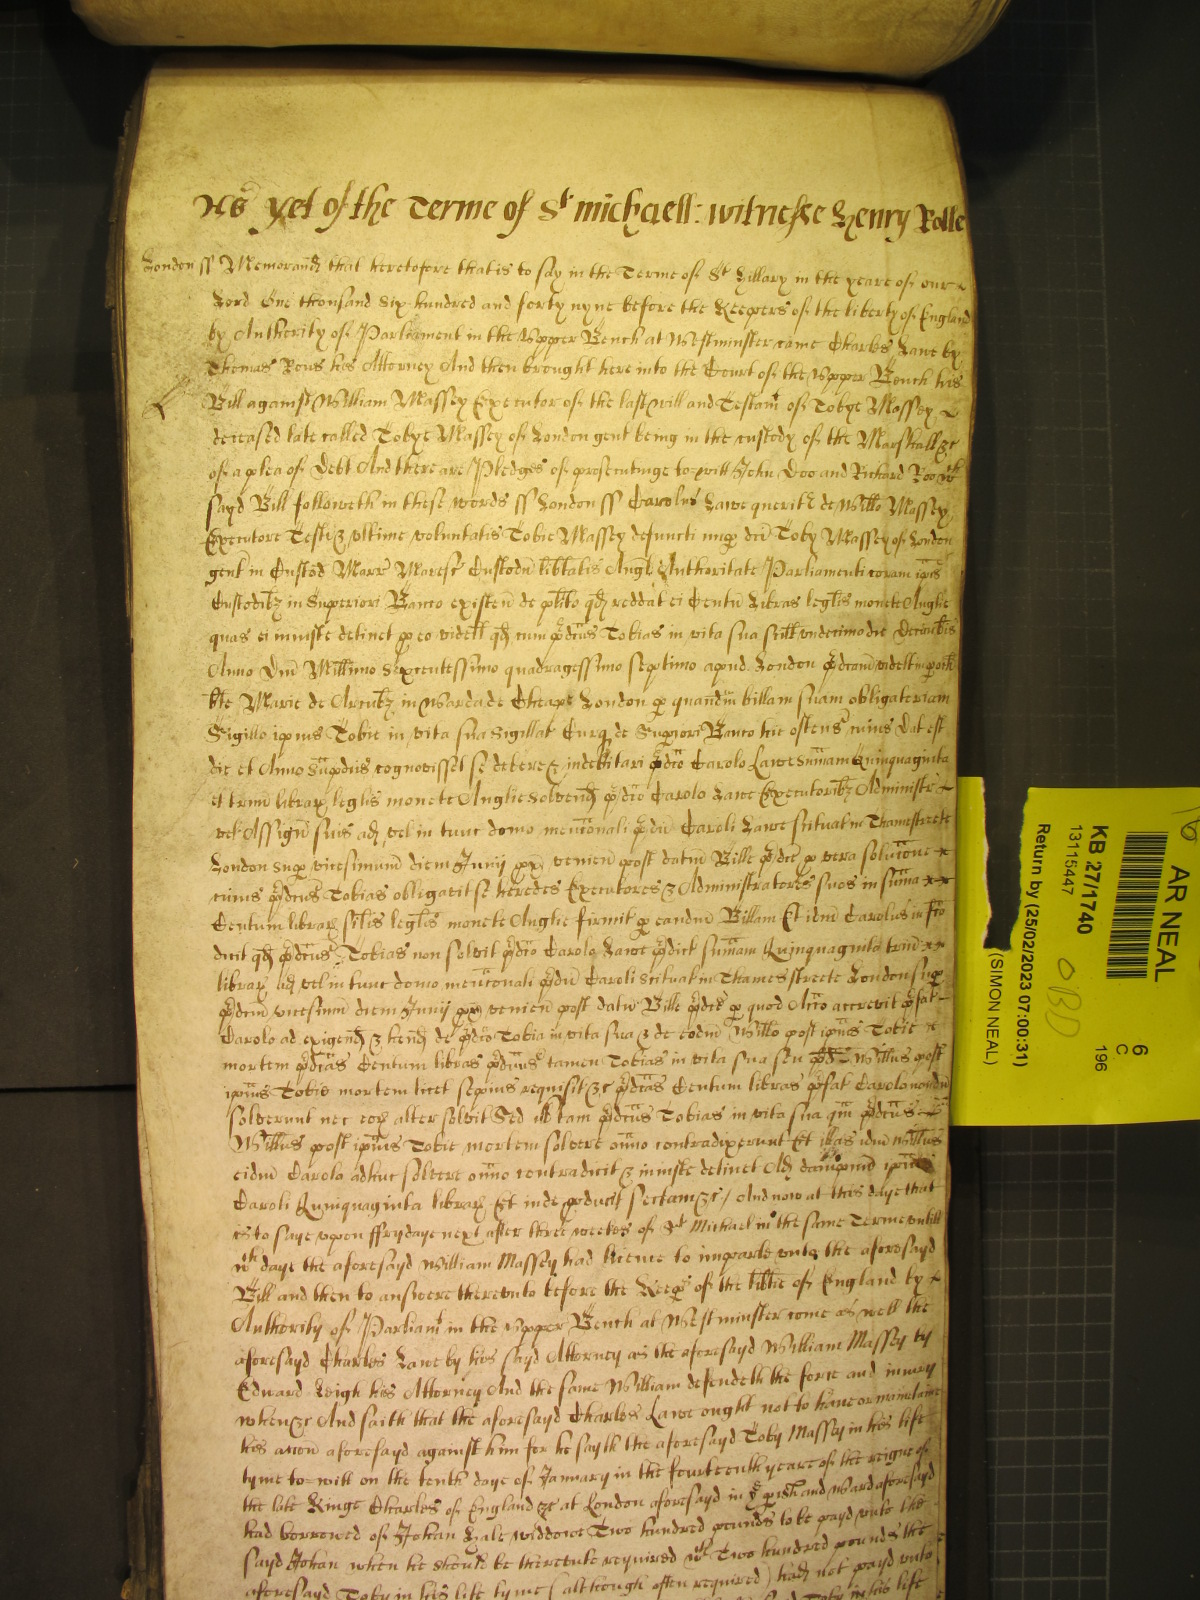 As yet of the Terme of St Michaell: witnesse Henry Rolle
London ss Memorand that heretofore that is to say in the Terme of St Hillary in the yeare of our
Lord One thousand six hundred and forty nyne before the Keepers of the liberty of England
by Authority of Parliament in the Upper Bench at Westminster came Charles Lawe by
Thomas Rous his Attorney And then brought here into the Court of the Upper Bench his
Bill against William Massey Executor of the last will and Testam of Tobye Massey
deceased late called Tobye Massey of London gent being in the custody of the Marshall &c
of a plea of Debt And there are Pledges of prosecutinge to-witt John Doo and Richard Roo wch
sayd Bill followeth in these words ss London ss Carolus Lawe querit de Willo Massey
Executore Testi & ultime voluntatis Tobie Massey defuncti nup dict Toby Massey of London
gent in Custod Marr Maresc Custodu libtatis Angl Authoritate Parliamenti coram ipis
Custodibz in Superiori Banco existen de plito qd reddat ei Centu libras leglis monete Anglie
quas ei iniuste detinet p eo videlt qd cum pdcus Tobias in vita sua scilt undecimo die Decembris
Anno Dni Millimo Sexcentessimo quadragessimo septimo apud London pdcam videlt in poch
bte Marie de Arcubz in Warda de Cheape London p quandm billam suam obligatoriam
Sigillo ipius Tobie in vita sua Sigillat Curq de Superiori Banco hic ostens cuius dat est
die et Anno supdcis cognovisset se debere & indebitari pdco Carolo Lawe sumam Quinquaginta
et trium librar leglis monete Anglie solvend pdco Carolo Lawe Executoribz Administr
vel Assign suis ad vel in tunc domo mencionali pdci Caroli Lawe scituat in Thamestreete
London sup vicesimum diem Junij px venien post datum Bille pdce p vera solucione
cuius pdcus Tobias obligavit se heredes Executores & Administratores suos in suma
Centum librar silis leglis monete Anglie firmit p eandm Billam Et idm Carolus in fco
dicit qd pdcus Tobias non solvit pdco Carolo Lawe pdict sumam Quinquaginta trium
librar ad vel in tunc domo mencionali pdci Caroli scituat in Thames streete London sup
pdcum vicesimum diem Junij px venien post datum Bille pdce p quod Accio accrevit pfat
Carolo ad exigend & hend de pdco Tobia in vita sua & de eodm Willo post ipius Tobie
mortem pdcas Centum libras pdcus tamen Tobias in vita sua seu pd Willus post
ipius Tobie mortem licet sepius requisit &c pdcas Centum libras pfat Carolo nondu
solverunt nec eor alter solvit Sed ill tam pdcus Tobias in vita sua qm pdcus
Willus post ipius Tobie mortem solvere omino contradixerunt Et illas idm Willus
eidm Carolo adhuc solvere omino contradicit & iniuste detinet Ad dampnum ipius
Caroli Quinquaginta librar Et inde producit sectam &c / And now at this daye that
is to saye upon ffrydaye next after three weekes of St Michael in the same Terme untill
wch daye the aforesayd William Massey had licence to imparle unto the aforesayd
Bill and then to answere thereunto before the Keeps of the libtie of England by
Authority of Parliamt in the upper Bench at Westminster come as well the
aforesayd Charles Lawe by his sayd Attorney as the aforesayd William Massey by
Edward Leigh his Attorney And the same William defendeth the force and iniury
when &c And saith that the aforesayd Charles Lawe ought not to have or mainetaine
his accon aforesayd against him for he sayth the aforesayd Toby Massey in his life
tyme to-witt on the tenth daye of January in the fourteenth yeare of the reigne of
the late Kinge Charles of England &c at London aforesayd in ye parish and Ward aforesayd
had borrowed of Johan Hale widdowe Two hundred pounds to be payd unto the
sayd Johan when he should be thereunto required wch Two hundred pounds the
aforesayd Toby in his life tyme (although often required) had not payd unto
AR NEAL
KB 27/1740
13115447
Return by (25/02/2023 07:00:31)
(SIMON NEAL)
6
C
196
OBD